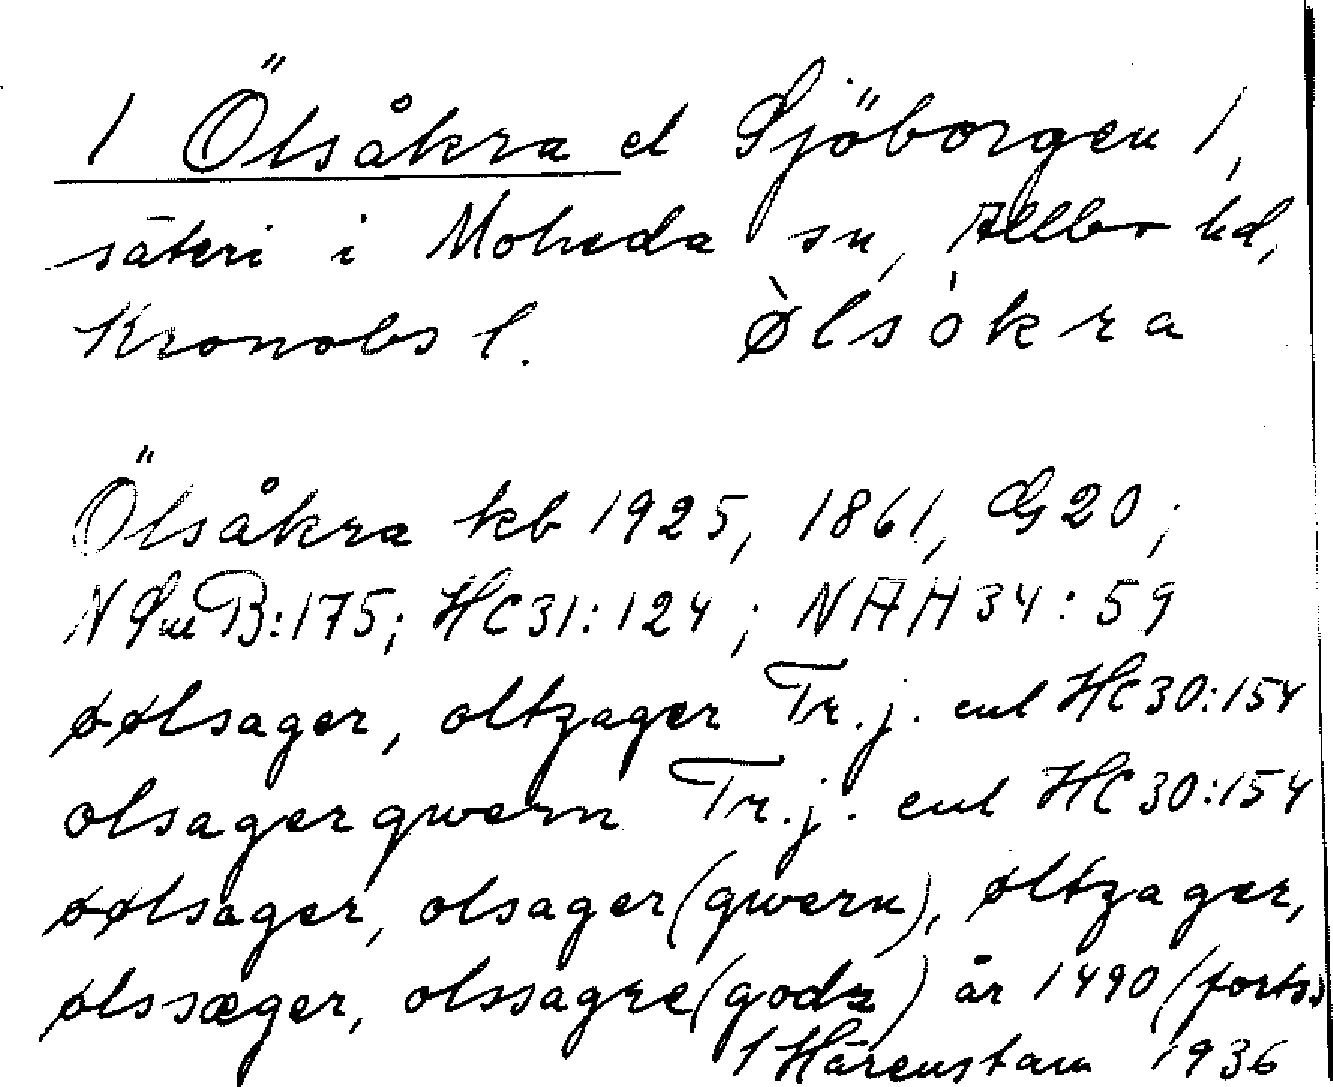 1 Ölsåkra el Sjöborgen 1,
säteri i Moheda sn, Allbo hd,
Kronobs l. Ølsokra
Ölsåkra kb 1925, 1861, G20;
NSmB:175; HC31:124; NAH34:59
øølsager, oltzager Tr.j. enl HC30:154
olsagerqwern Tr.j. enl HC30:154
øølsager, olsager(qwern), øltzager,
ølssæger, olssagre(godz) år 1490 (forts)
1 Härenstam 1936